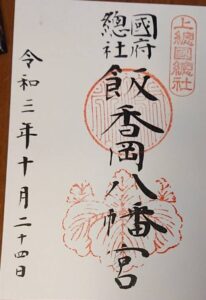 上總國總社
國府
總社
飯香岡八幡宮
令和三年十月二十四日